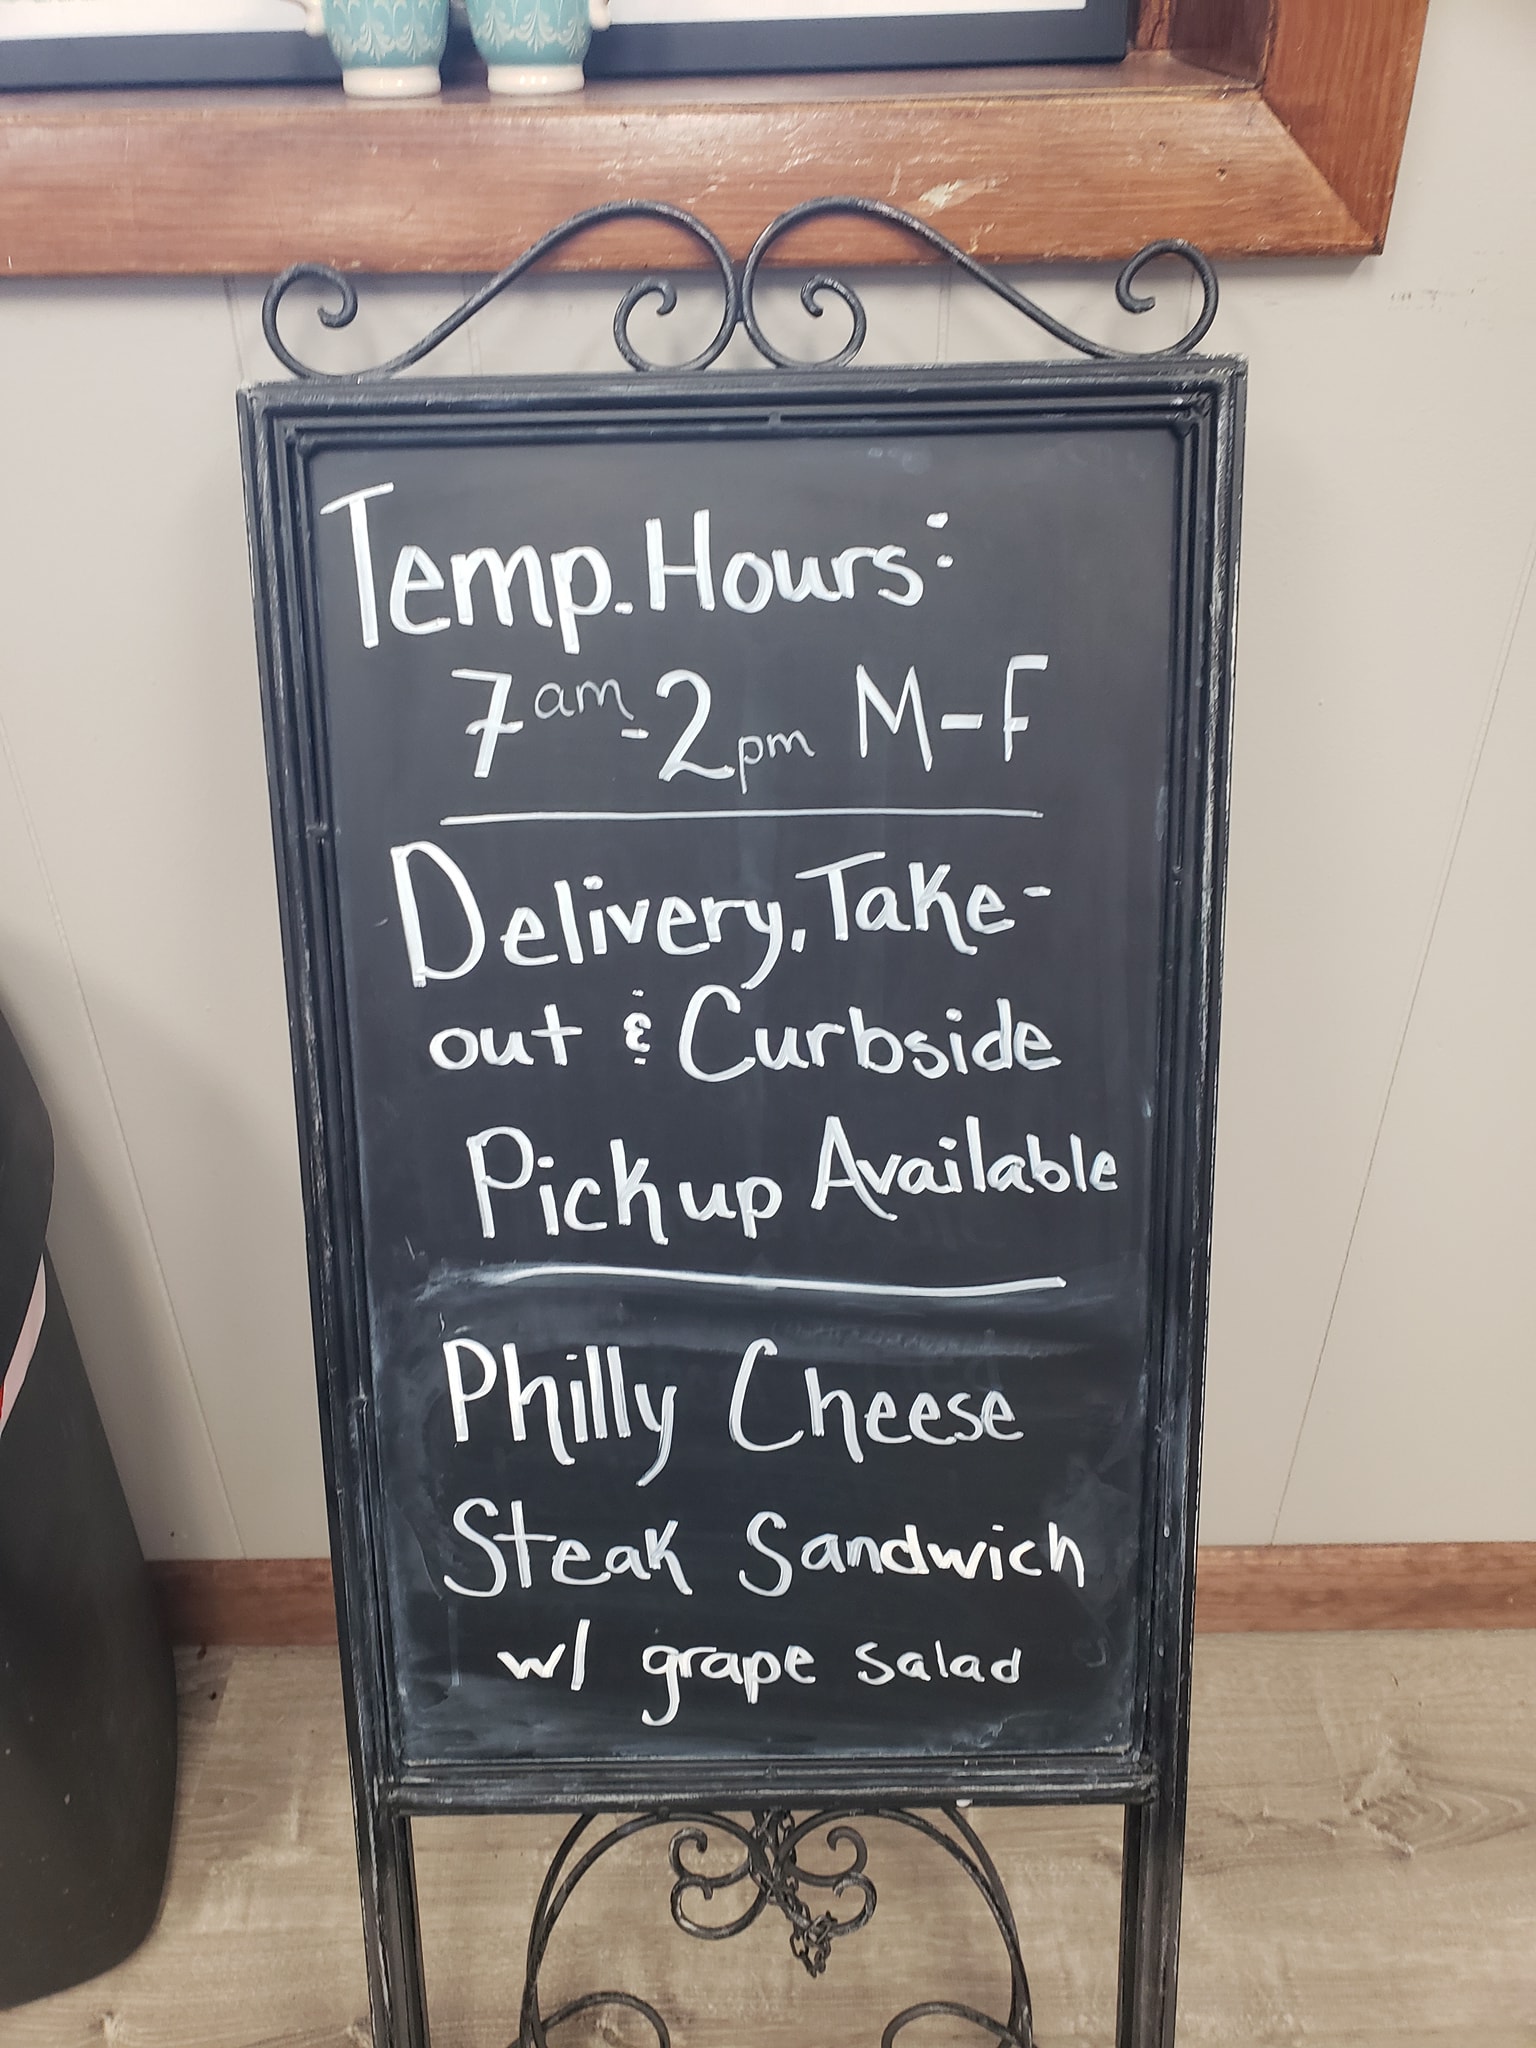 Temp. Hours:
7am-2pm M-F
Delivery, Take-
out & Curbside
Pickup Available
Philly Cheese
Steak Sandwich
w/ grape salad